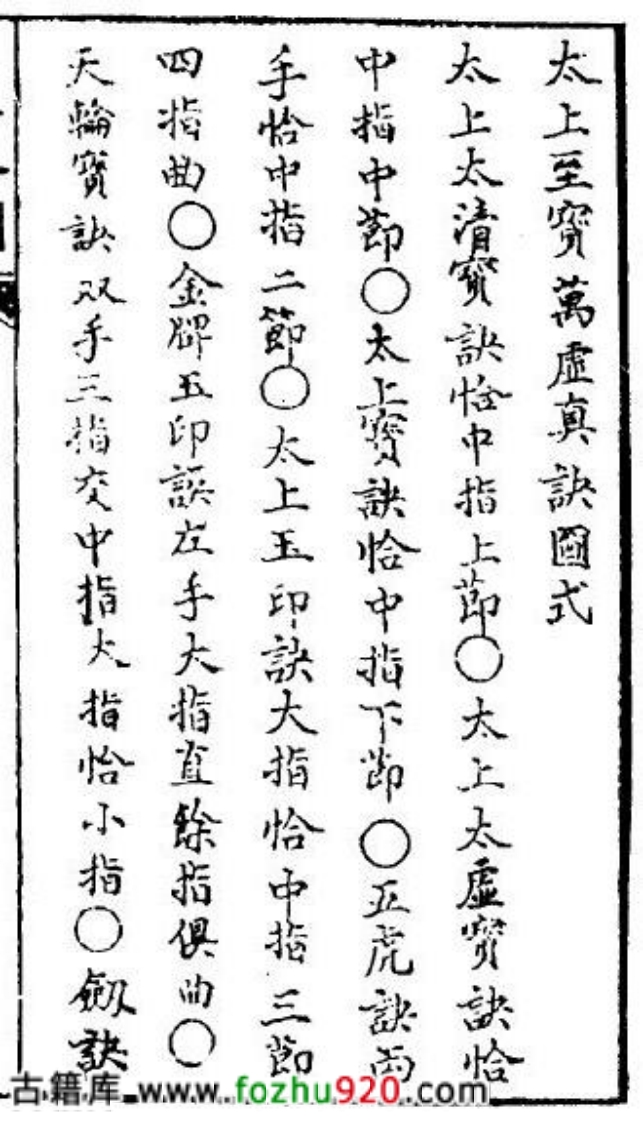 太上至寳萬虛真訣圖式
太上太清寳訣恰中指上節〇太上太虛寳訣恰
中指中節〇太上寳訣恰中指下節〇五虎訣両
手恰中指二節〇太上玉印訣大指恰中指三節
四指曲〇金牌玉印訣左手大指直餘指俱曲〇
天輪寳訣双手三指交中指大指恰小指〇劔訣
古籍库 www.fozhu920.com